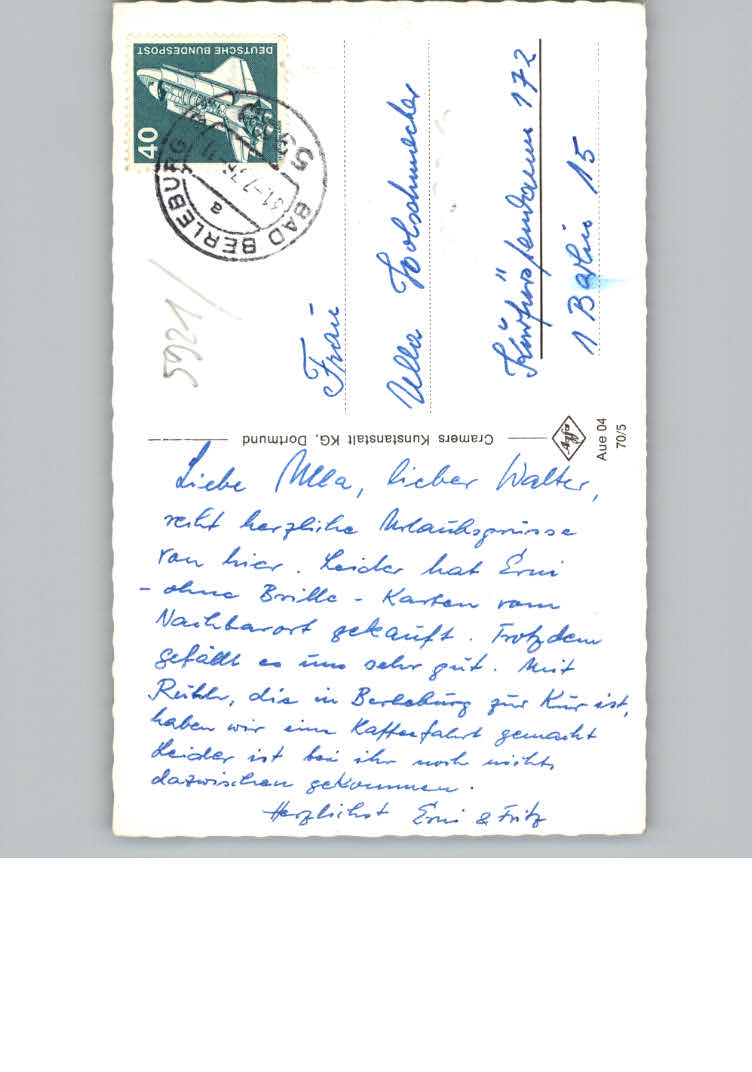 Liebe Ulla, lieber Walter,
recht herzliche Urlaubsgrüsse
von hier. Leider hat Erni
- ohne Brille - Karten vom
Nachbarort gekauft. Trotzdem
gefällt es uns sehr gut. Mit
die in Berleburg zur Kur ist,
haben wir eine Kaffeefahrt gemacht
Leider ist bei ihr noch nichts
dazwischen gekommen.
Herzlichst Erni & Fritz
Cramers Kunstanstalt KG, Dortmund
Aue 04
70/5
DEUTSCHE BUNDESPOST
40
BAD BERLEBURG
a
5921/
Frau
Ulla
Kürfürstendamm 172
1 Berlin 15